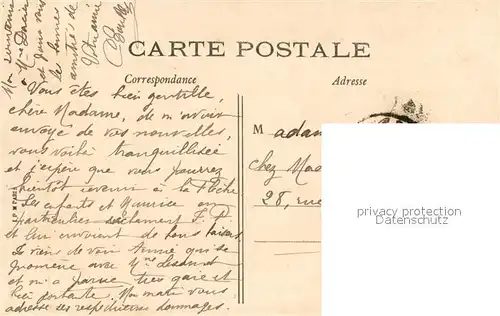 Mon
à Mme
et pour vous
les bonnes
amitiés de
Votre amie
CARTE POSTALE
Correspondance
Adresse
Vous êtes bien gentille,
chère Madame, de m'avoir
envoyé de vos nouvelles,
vous voilà tranquillisée
et j'espère que vous pourrez
bientôt revenir à la Flèche
Les enfants et Maurice en
particulier réclament
et lui envoient de bons baisers
Je viens de voir Annie qui se
promène avec Mme
et m'a paru très gaie et
bien portante. Mon mari vous
adresse ses respectueux hommages.
M adam
chez Mad
28, rue
privacy protection
Datenschutz